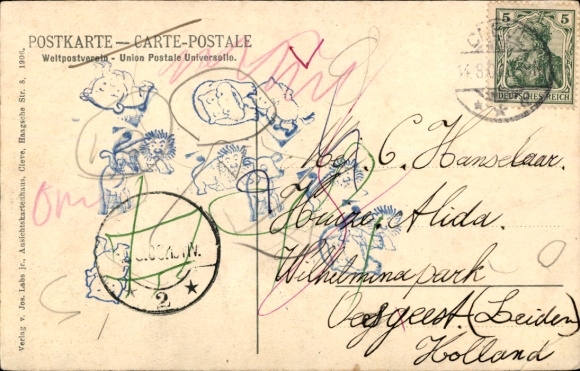 POSTKARTE — CARTE-POSTALE
Weltpostverein - Union Postale Universelle.
Verlag v. Jos. Labs jr., Ansichtskartenhaus, Cleve, Haagsche Str. 8, 1906.
5 5
DEUTSCHES REICH
C. Hanselaar.
Huize Alida.
Wilhelmina park
Oegstgeest. (Leiden)
Holland
2